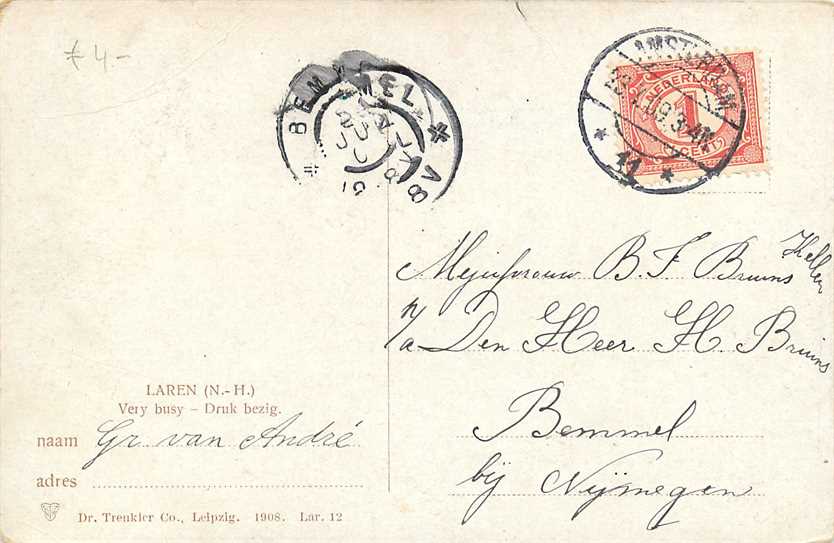 4-
BEMMEL
8V
AMSTERDAM
11
NEDERLAND
1
CENT
Mejufvrouw B. F. Bruins
p/a Den Heer H. Bruins
Bemmel
bij Nijmegen
LAREN (N.-H.)
Very busy – Druk bezig.
naam Gr van André
adres
Dr. Trenkler Co., Leipzig. 1908. Lar. 12